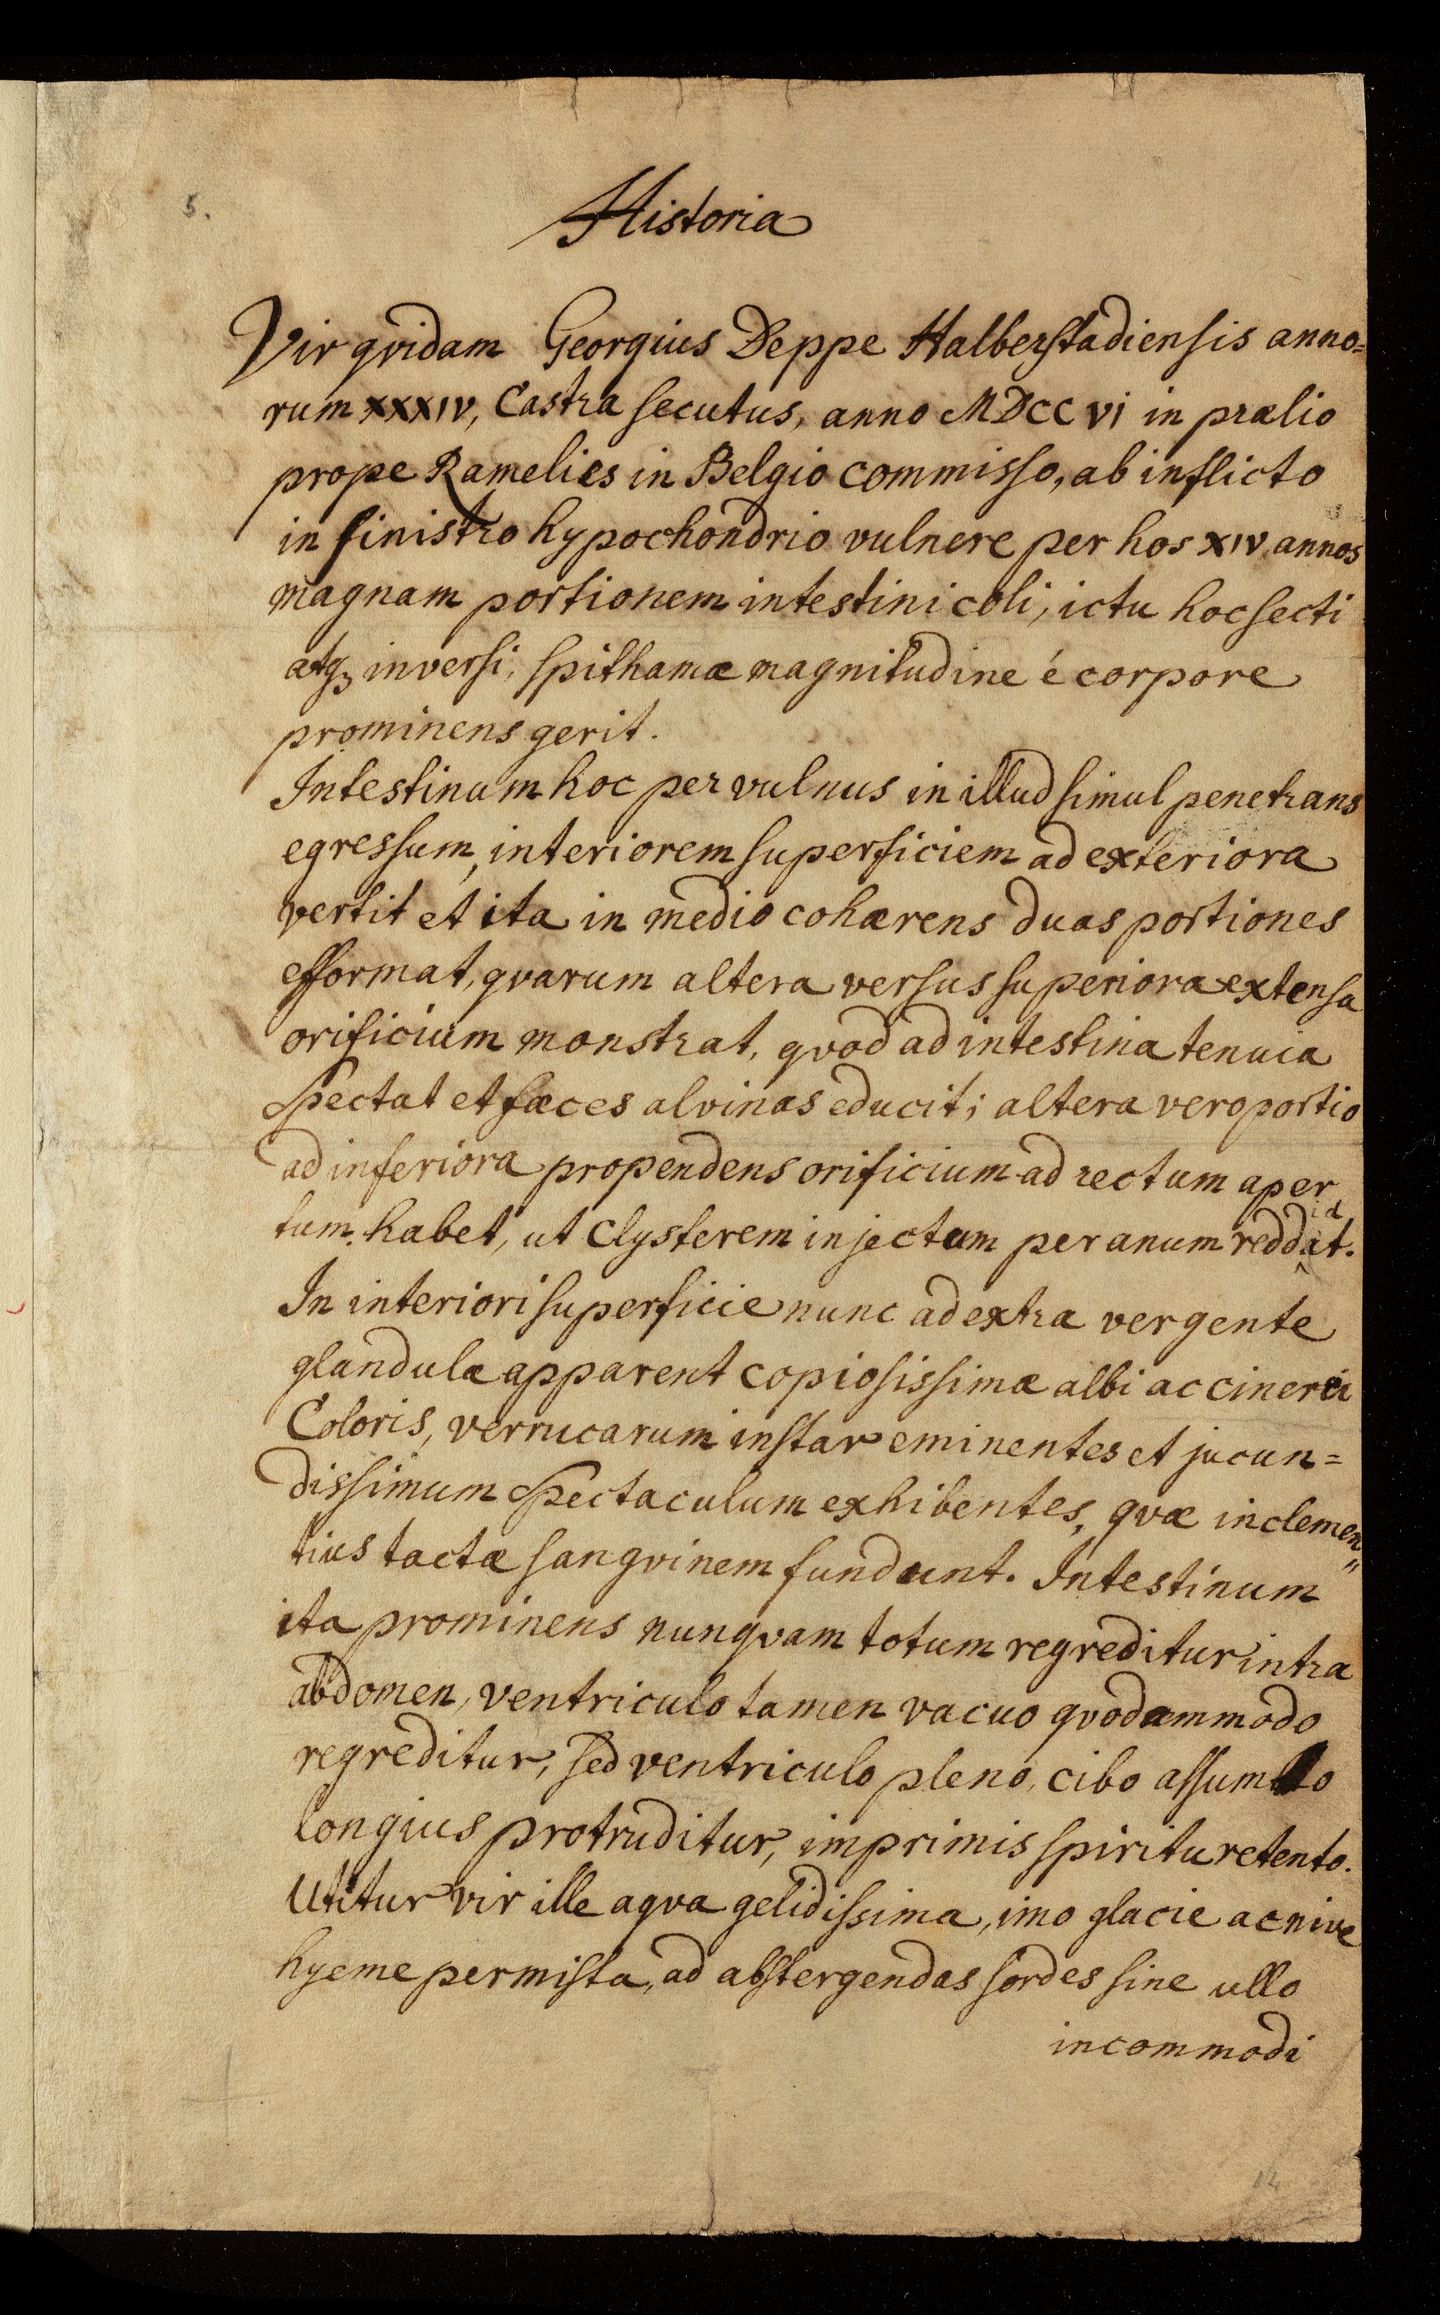 5.
Historia
Vir qvidam Georgius Deppe Halberstadiensis anno=
rum XXXIV, Castra secutus, anno MDCCVI in prælio
prope Ramelies in Belgio commisso, ab inflicto
in sinistro hypochondrio vulnere per hos XIV annos
magnam portionem intestini coli, ictu hoc secti
atq; inversi, spithamæ magnitudine é corpore
prominens gerit.
Intestinum hoc per vulnus in illud simul penetrans
egressum, interiorem superficiem ad exteriora
vertit et ita in medio cohærens duas portiones
efformat, qvarum altera versus superiora extensa
orificium monstrat, qvod ad intestina tenuia
spectat et fæces alvinas educit; altera vero portio
ad inferiora propendens orificium ad rectum aper
tum habet, ut Clysterem injectum per anum reddat.
id
In interiori superficie nunc ad extra vergente
glandulæ apparent copiosissimæ albi ac cinerei
Coloris, verrucarum instar eminentes et jucun=
dissimum spectaculum exhibentes, qvæ inclemen=
tius tactæ sangvinem fundunt. Intestinum
ita prominens nunqvam totum regreditur intra
abdomen, ventriculo tamen vacuo qvodammodo
regreditur, sed ventriculo pleno, cibo assumto
longius protruditur, imprimis spiritu retento.
Utitur vir ille aqva gelidissima, imo glacie ac nive
hyeme permista, ad abstergendas sordes sine ullo
incommodi
14